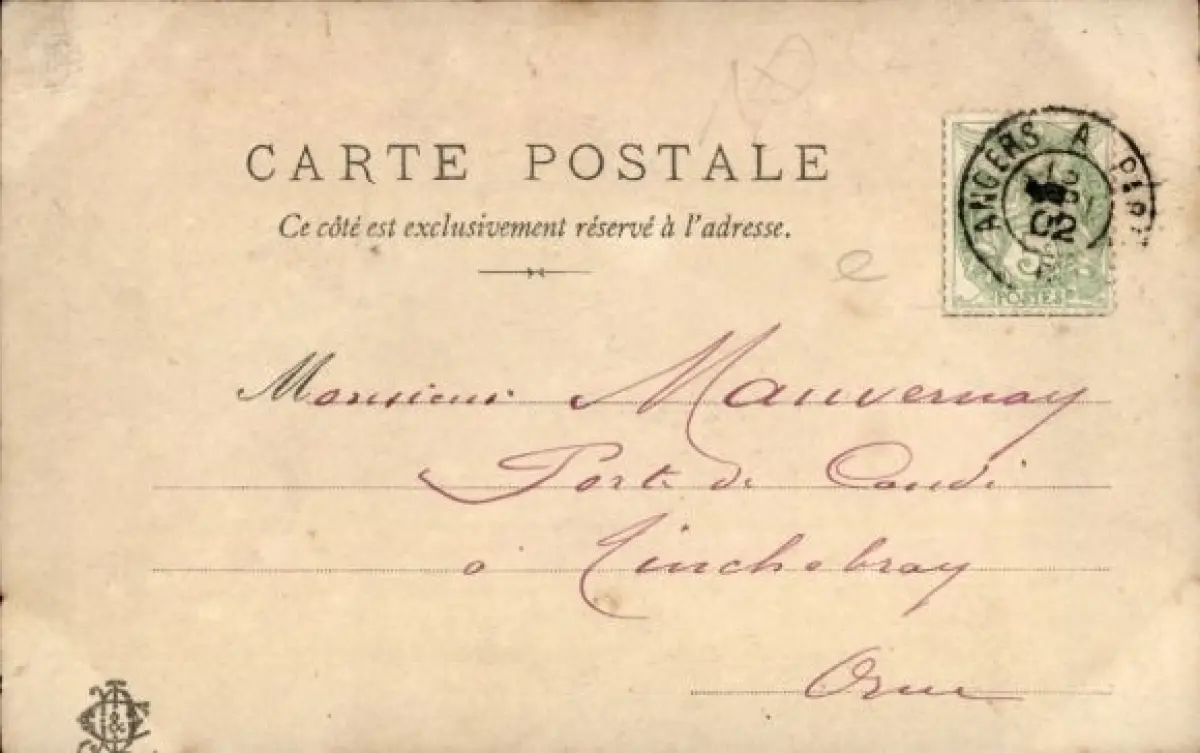 CARTE POSTALE
Ce côté est exclusivement réservé à l'adresse.
ANGERS A
POSTES
e
Monsieur Mauvernay
Porte de Condé
à Tinchebray
Orne